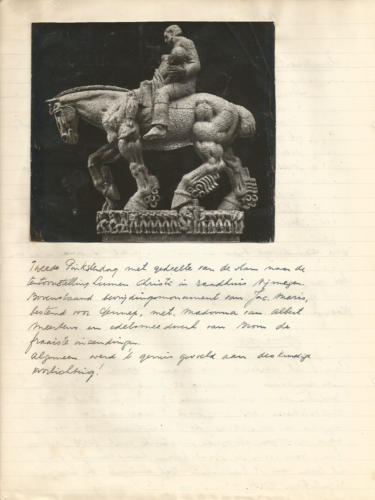 Tweede Pinksterdag met gedeelte van de klas naar de
tentoonstelling Lumen Christi in raadhuis Nijmegen.
Bovenstaand bevrijdingsmonument van Jac. Maris,
bestemd voor Gennep, met Madonna van Albert
Meertens en edelsmeedwerk van Brom de
fraaiste inzendingen.
Algemeen werd 't gemis gevoeld aan deskundige
voorlichting!